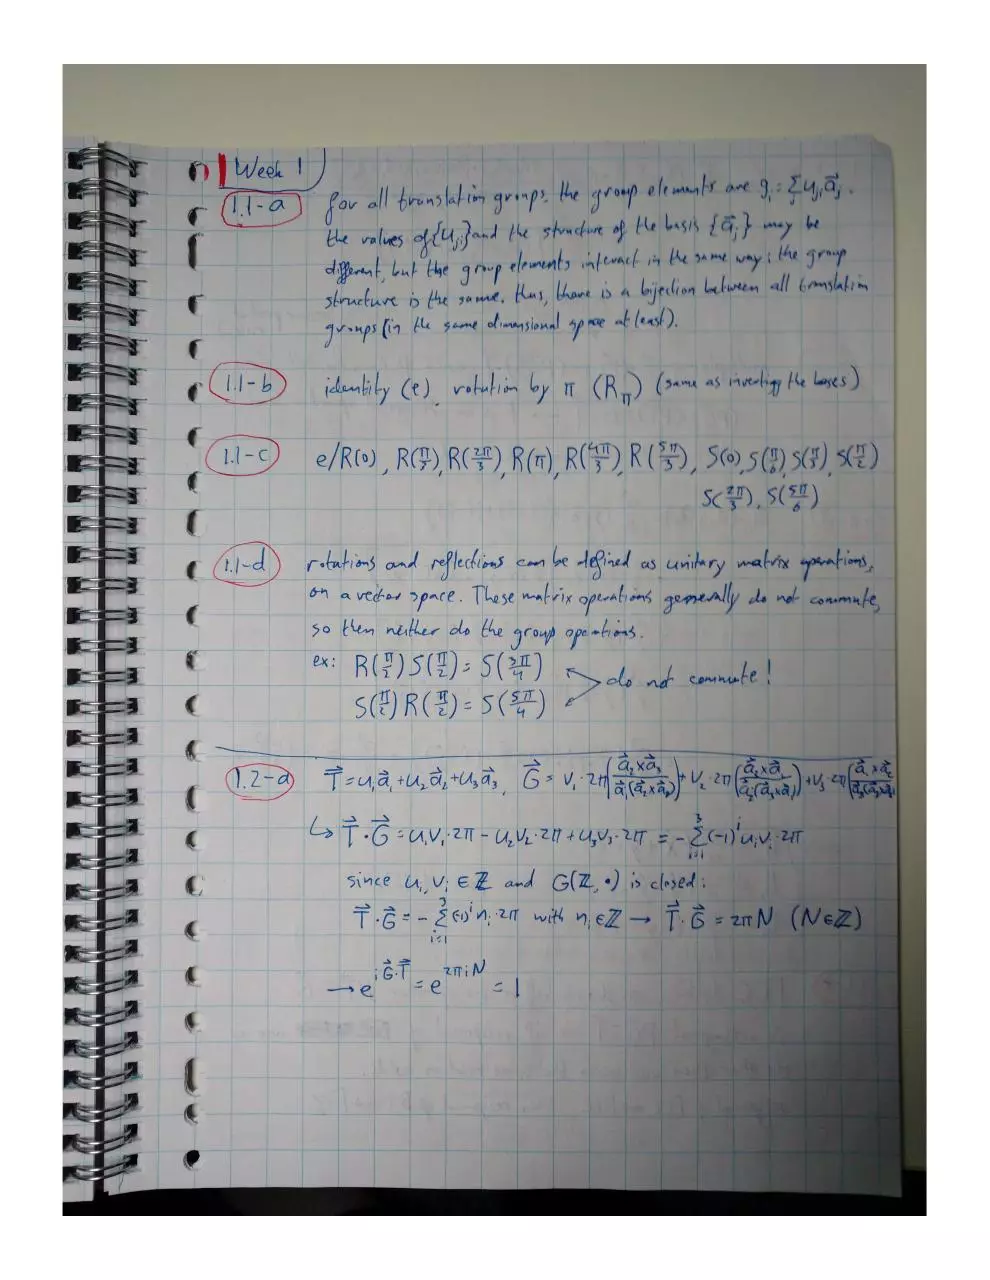 Week 1
1.1-a for all translation groups, the group elements are gᵢ = Σ uⱼᵢ a⃗ⱼ.
the values of {uⱼᵢ} and the structure of the basis {a⃗ⱼ} may be
different, but the group elements interact in the same way: the group
structure is the same. thus, there is a bijection between all translation
groups (in the same dimensional space at least).
1.1-b identity (e), rotation by π (R_π) (same as inverting the bases)
1.1-c e/R(0), R(π/3), R(2π/3), R(π), R(4π/3), R(5π/3), S(0), S(π/6), S(π/3), S(π/2)
S(2π/3), S(5π/6)
1.1-d rotations and reflections can be defined as unitary matrix operations,
on a vector space. These matrix operations generally do not commute,
so then neither do the group operations.
ex: R(π/2) S(π/2) = S(3π/4)
do not commute!
S(π/2) R(π/2) = S(5π/4)
1.2-a T⃗ = u₁a⃗₁ + u₂a⃗₂ + u₃a⃗₃, G⃗ = v₁·2π(a⃗₂×a⃗₃ / a⃗₁(a⃗₂×a⃗₃)) + v₂·2π(a⃗₃×a⃗₁ / a⃗₂(a⃗₃×a⃗₁)) + v₃·2π(a⃗₁×a⃗₂ / a⃗₃(a⃗₁×a⃗₂
↳ T⃗·G⃗ = u₁v₁·2π − u₂v₂·2π + u₃v₃·2π = −Σᵢ₌₁³ (−1)ⁱ uᵢvᵢ·2π
since uᵢ, vᵢ ∈ ℤ and G(ℤ, •) is closed:
T⃗·G⃗ = −Σᵢ₌₁³ (−1)ⁱ nᵢ·2π with nᵢ ∈ ℤ → T⃗·G⃗ = 2πN (N ∈ ℤ)
→ e^(iG⃗·T⃗) = e^(2πiN) = 1